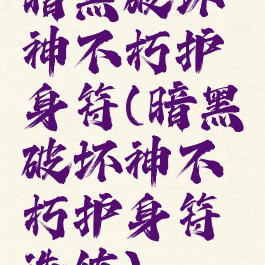 暗黑破坏
神不朽护
身符(暗黑
破坏神不
朽护身符